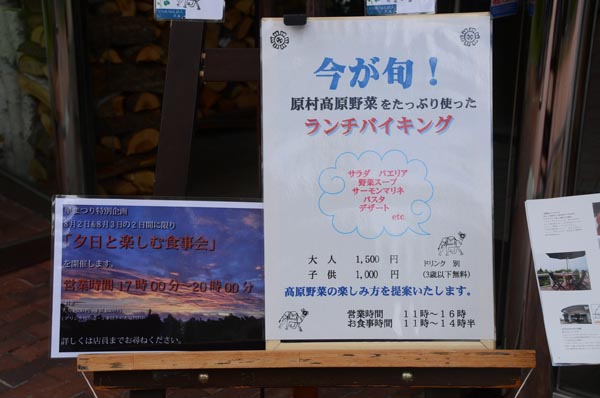 今が旬！
原村高原野菜をたっぷり使った
ランチバイキング
サラダ　パエリア
野菜スープ
サーモンマリネ
パスタ
デザート
etc
大　人　1,500　円　ドリンク　別
子　供　1,000　円　(3歳以下無料)
高原野菜の楽しみ方を提案いたします。
営業時間　11時～16時
お食事時間　11時～14時半
まつり特別企画
8月2日&8月3日の2日間に限り
「夕日と楽しむ食事会」
を開催します。
営業時間17時00分～20時00分
詳しくは店員までお尋ねください。